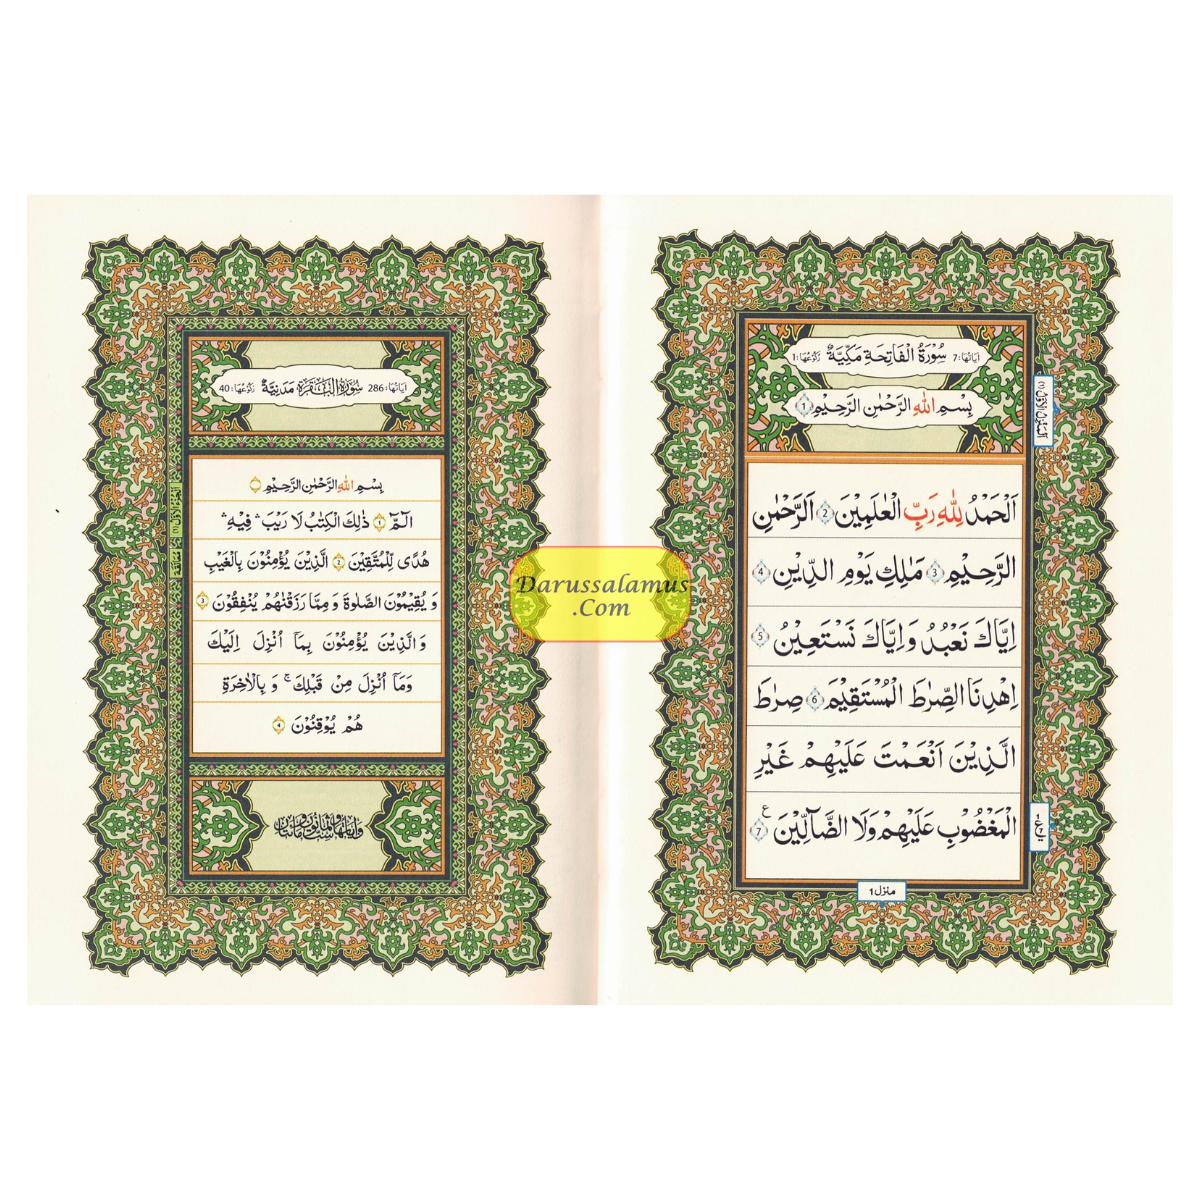 اٰيَاتُهَا: 7 سُوْرَةُ الْفَاتِحَةِ مَكِّيَّةٌ رُكُوْعُهَا: 1
بِسْمِ اللّٰهِ الرَّحْمٰنِ الرَّحِيْمِ 1
اَلْحَمْدُ لِلّٰهِ رَبِّ الْعٰلَمِيْنَ 2 الرَّحْمٰنِ
الرَّحِيْمِ 3 مٰلِكِ يَوْمِ الدِّيْنِ 4
اِيَّاكَ نَعْبُدُ وَاِيَّاكَ نَسْتَعِيْنُ 5
اِهْدِنَا الصِّرَاطَ الْمُسْتَقِيْمَ 6 صِرَاطَ
الَّذِيْنَ اَنْعَمْتَ عَلَيْهِمْ غَيْرِ
الْمَغْضُوْبِ عَلَيْهِمْ وَلَا الضَّآلِّيْنَ 7 ع
منزل 1
اٰيَاتُهَا: 286 سُوْرَةُ الْبَقَرَةِ مَدَنِيَّةٌ رُكُوْعُهَا: 40
بِسْمِ اللّٰهِ الرَّحْمٰنِ الرَّحِيْمِ
الٓمّٓ 1 ذٰلِكَ الْكِتٰبُ لَا رَيْبَ ۛ فِيْهِ ۛ
هُدًى لِّلْمُتَّقِيْنَ 2 الَّذِيْنَ يُؤْمِنُوْنَ بِالْغَيْبِ
وَ يُقِيْمُوْنَ الصَّلٰوةَ وَ مِمَّا رَزَقْنٰهُمْ يُنْفِقُوْنَ 3
وَالَّذِيْنَ يُؤْمِنُوْنَ بِمَآ اُنْزِلَ اِلَيْكَ
وَمَآ اُنْزِلَ مِنْ قَبْلِكَ ۚ وَ بِالْاٰخِرَةِ
هُمْ يُوْقِنُوْنَ 4
Darussalamus
.Com